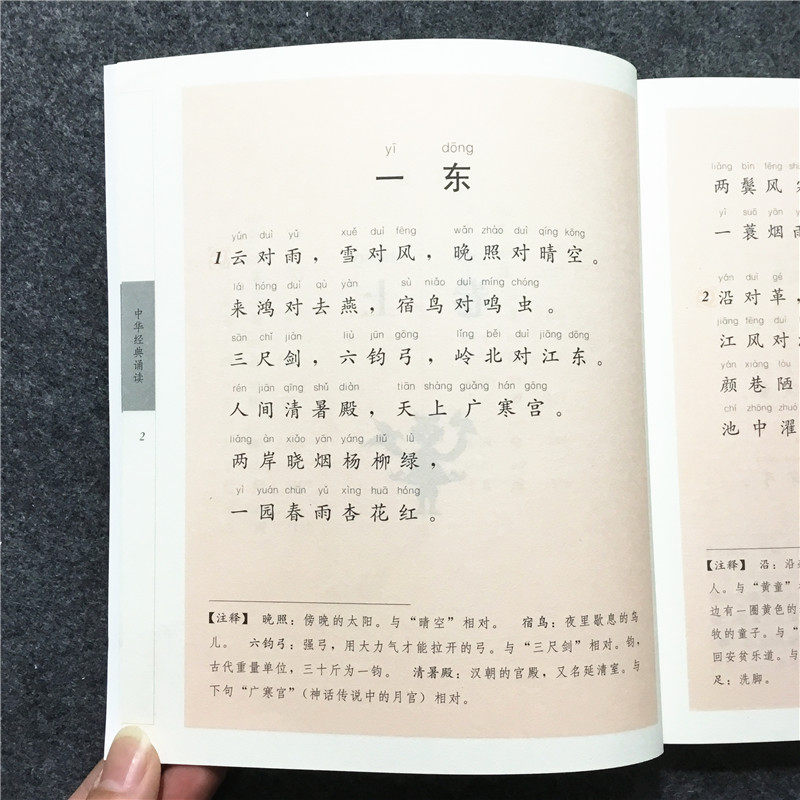 yī dōng
一 东
yún duì yǔ xuě duì fēng wǎn zhào duì qíng kōng
1 云对雨，雪对风，晚照对晴空。
lái hóng duì qù yàn sù niǎo duì míng chóng
来鸿对去燕，宿鸟对鸣虫。
sān chǐ jiàn liù jūn gōng lǐng běi duì jiāng dōng
三尺剑，六钧弓，岭北对江东。
rén jiān qīng shǔ diàn tiān shàng guǎng hán gōng
人间清暑殿，天上广寒宫。
liǎng àn xiǎo yān yáng liǔ lǜ
两岸晓烟杨柳绿，
yì yuán chūn yǔ xìng huā hóng
一园春雨杏花红。
【注释】 晚照：傍晚的太阳。与“晴空”相对。 宿鸟：夜里歇息的鸟
儿。 六钧弓：强弓，用大力气才能拉开的弓。与“三尺剑”相对。钧，
古代重量单位，三十斤为一钧。 清暑殿：汉朝的宫殿，又名延清室。与
下句“广寒宫”（神话传说中的月宫）相对。
中华经典诵读
2
liǎng bìn fēng
两鬓风
yì suō yān
一蓑烟雨
yán duì gé
2 沿对革，
jiāng fēng duì
江风对
yán xiàng lòu
颜巷陋
chí zhōng zhuó
池中濯
【注释】 沿：沿
人。与“黄童”
边有一圈黄色的
牧的童子。与“
回安贫乐道。与
足：洗脚。